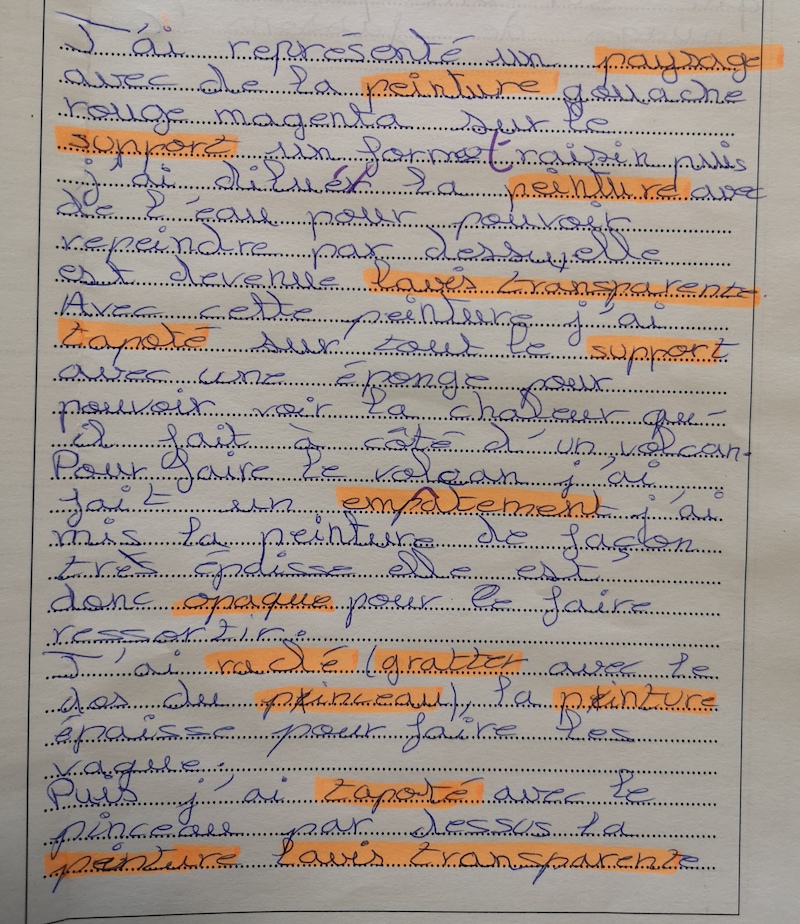 J'ai représenté un paysage
avec de la peinture gouache
rouge magenta sur le
support un format raisin puis
j'ai dilué la peinture avec
de l'eau pour pouvoir
repeindre par dessus, elle
est devenue lavis transparente
Avec cette peinture j'ai
tapoté sur tout le support
avec une éponge pour
pouvoir voir la chaleur qu'
il fait à côté d'un volcan.
Pour faire le volcan j'ai
fait un empâtement j'ai
mis la peinture de façon
très épaisse elle est
donc opaque pour le faire
ressortir.
J'ai raclé (gratter avec le
dos du pinceau), la peinture
épaisse pour faire les
vague.
Puis j'ai tapoté avec le
pinceau par dessus la
peinture lavis transparente